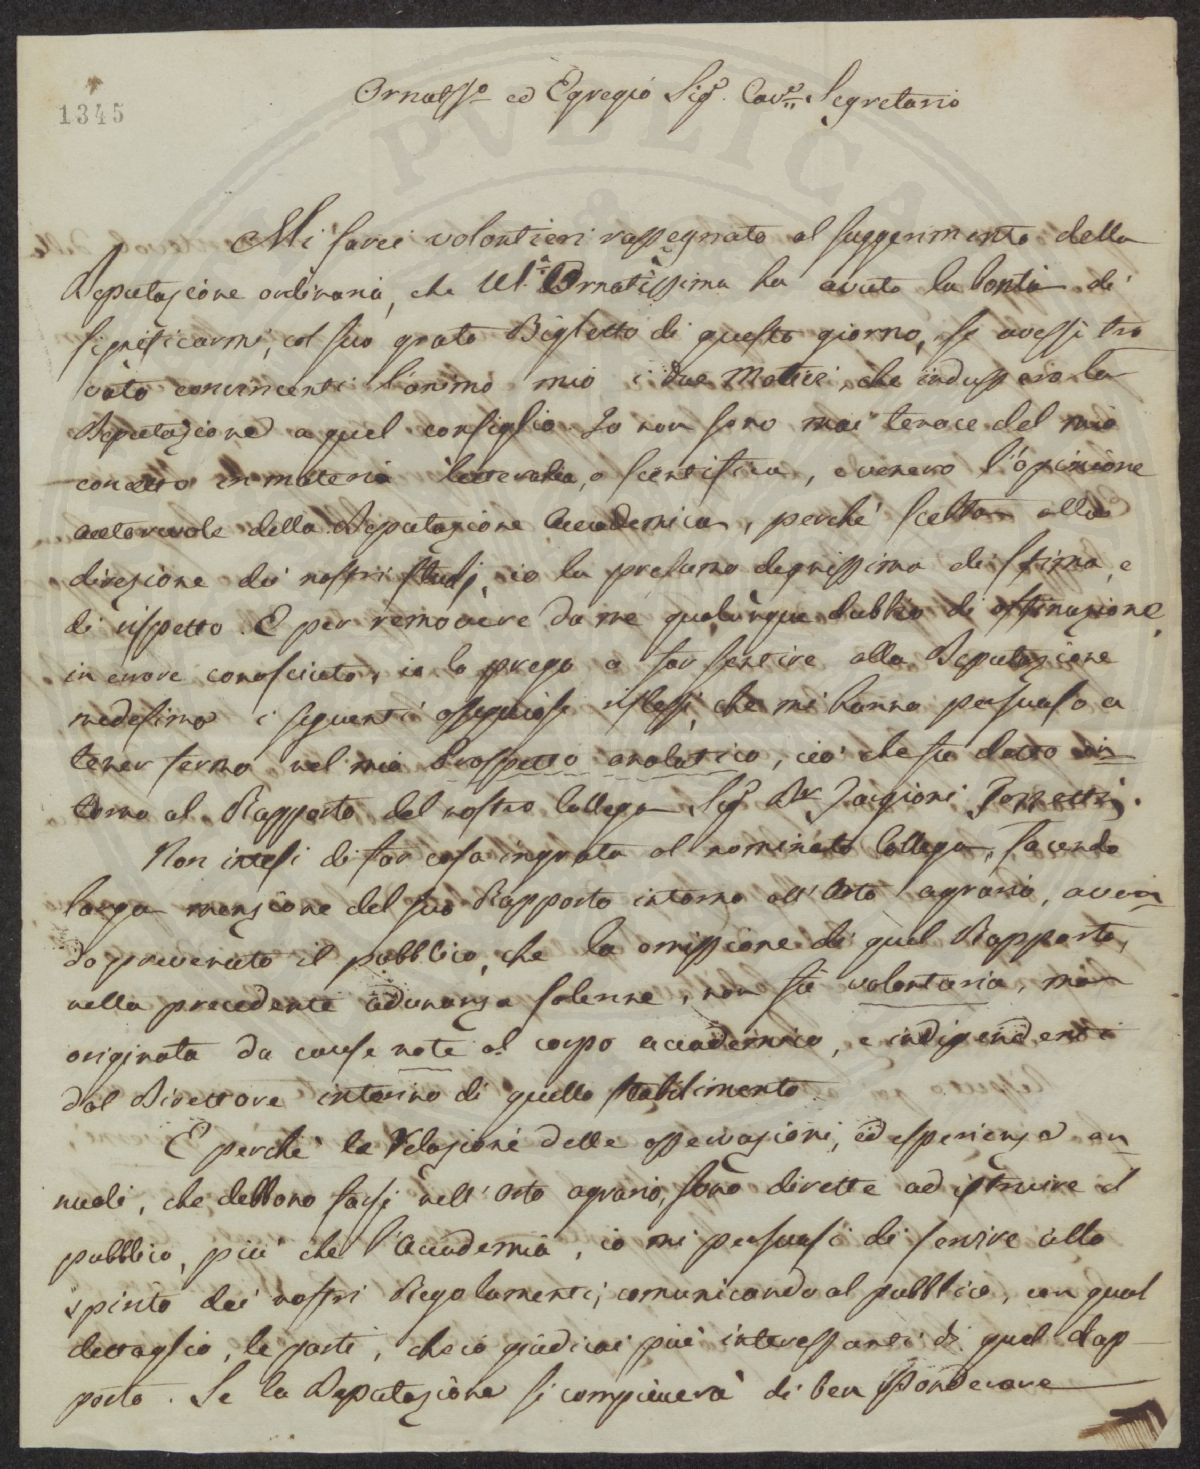 1345
Ornatss.o ed Egregio Sig.r Cav.re Segretario
Mi sarei volontieri rassegnato al suggerimento della
Deputazione ordinaria, che V.S. Ornatissima ha avuto la bontà di
significarmi, col suo grato Biglietto di questo giorno, se avessi tro
vato convincenti l'animo mio i due Motivi, che indussero la
Deputazione a quel consiglio. Io non sono mai tenace del mio
concetto in materia letteraria, o scientifica, e venero l'opinione
autorevole della Deputazione Accademica, perchè scelta alla
direzione dei nostri studj, io la presumo degnissima di stima, e
di rispetto. E per removere da me qualunque dubbio di ostinazione
in errore conosciuto, io la prego a far sentire alla Deputazione
medesima i seguenti ossequiosi riflessi, che mi hanno persuaso a
tener fermo nel mio Prospetto analitico, ciò che fu detto in
torno al Rapporto del nostro Collega Sig.r D.r Targioni Tozzetti.
Non intesi di far cosa ingrata al nominato Collega, facendo
larga menzione del suo Rapporto intorno all'Orto agrario, aven
do prevenuto il pubblico, che la omissione di quel Rapporto,
nella precedente adunanza solenne, non fu volontaria, ma
originata da cause note al corpo accademico, e indipendenti
dal Direttore interino di quello stabilimento.
E perchè le Relazioni delle osservazioni, ed esperienze an
nuali, che debbono farsi nell'Orto agrario, sono dirette ad istruire il
pubblico, più che l'Accademia, io mi persuasi di servire allo
spirito dei nostri Regolamenti, comunicando al pubblico, con qual
dettaglio, le parti, che io giudicai più interessanti di quel Rap
porto. Se la Deputazione si compiacerà di ben ponderare